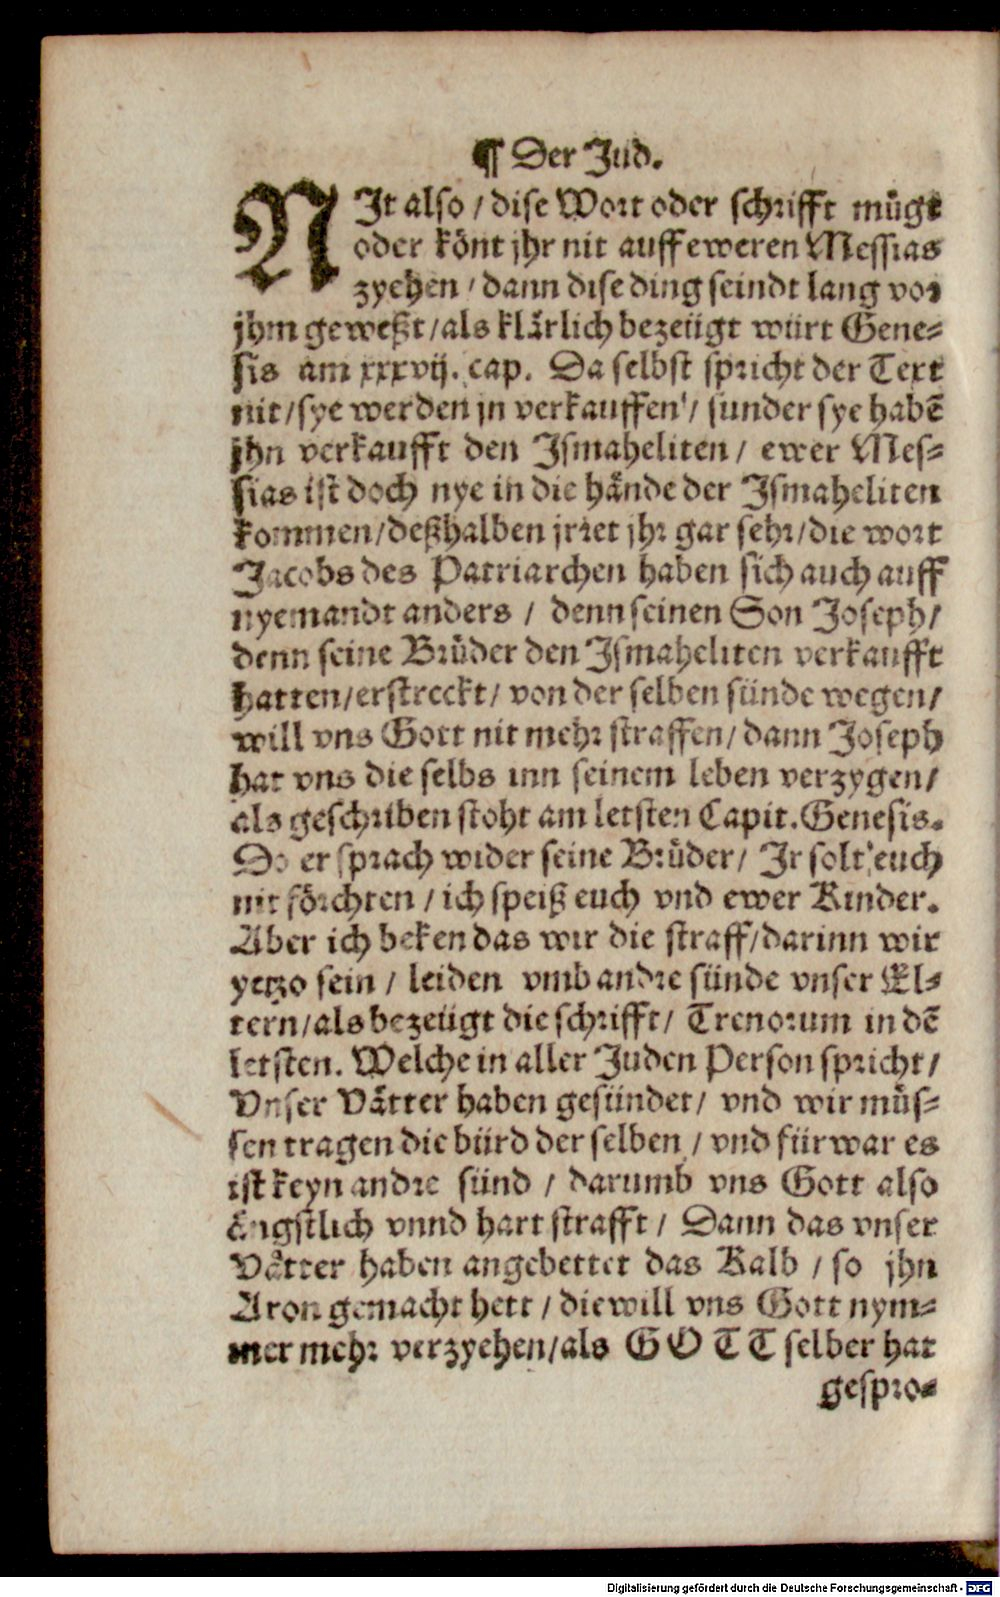 ¶ Der Jud.
NIt also / dise Wort oder schrifft mügt
oder könt jhr nit auff eweren Messias
zyehen / dann dise ding seindt lang vor
jhm geweßt / als klärlich bezeügt würt Gene=
sis am xxxvij. cap. Da selbst spricht der Text
nit / sye werden jn verkauffen / sunder sye habē
jhn verkaufft den Ismaheliten / ewer Mes=
sias ist doch nye in die hände der Ismaheliten
kommen / deßhalben jrret jhr gar sehr / die wort
Jacobs des Patriarchen haben sich auch auff
nyemandt anders / denn seinen Son Joseph /
denn seine Brůder den Ismaheliten verkaufft
hatten / erstreckt / von der selben sünde wegen /
will vns Gott nit mehr straffen / dann Joseph
hat vns die selbs inn seinem leben verzygen /
als geschriben stoht am letsten Capit. Genesis.
Do er sprach wider seine Brüder / Ir solt euch
nit förchten / ich speiß euch vnd ewer Kinder.
Aber ich beken das wir die straff / darinn wir
yetzo sein / leiden vmb andre sünde vnser El=
tern / als bezeügt die schrifft / Trenorum in dē
letsten. Welche in aller Juden Person spricht /
Vnser Vätter haben gesündet / vnd wir müs=
sen tragen die bürd der selben / vnd fürwar es
ist keyn andre sünd / darumb vns Gott also
ängstlich vnnd hart strafft / Dann das vnser
Vätter haben angebettet das Kalb / so jhn
Aron gemacht hett / die will vns Gott nym=
mer mehr verzyehen / als GOTT selber hat
gespro=
Digitalisierung gefördert durch die Deutsche Forschungsgemeinschaft - DFG